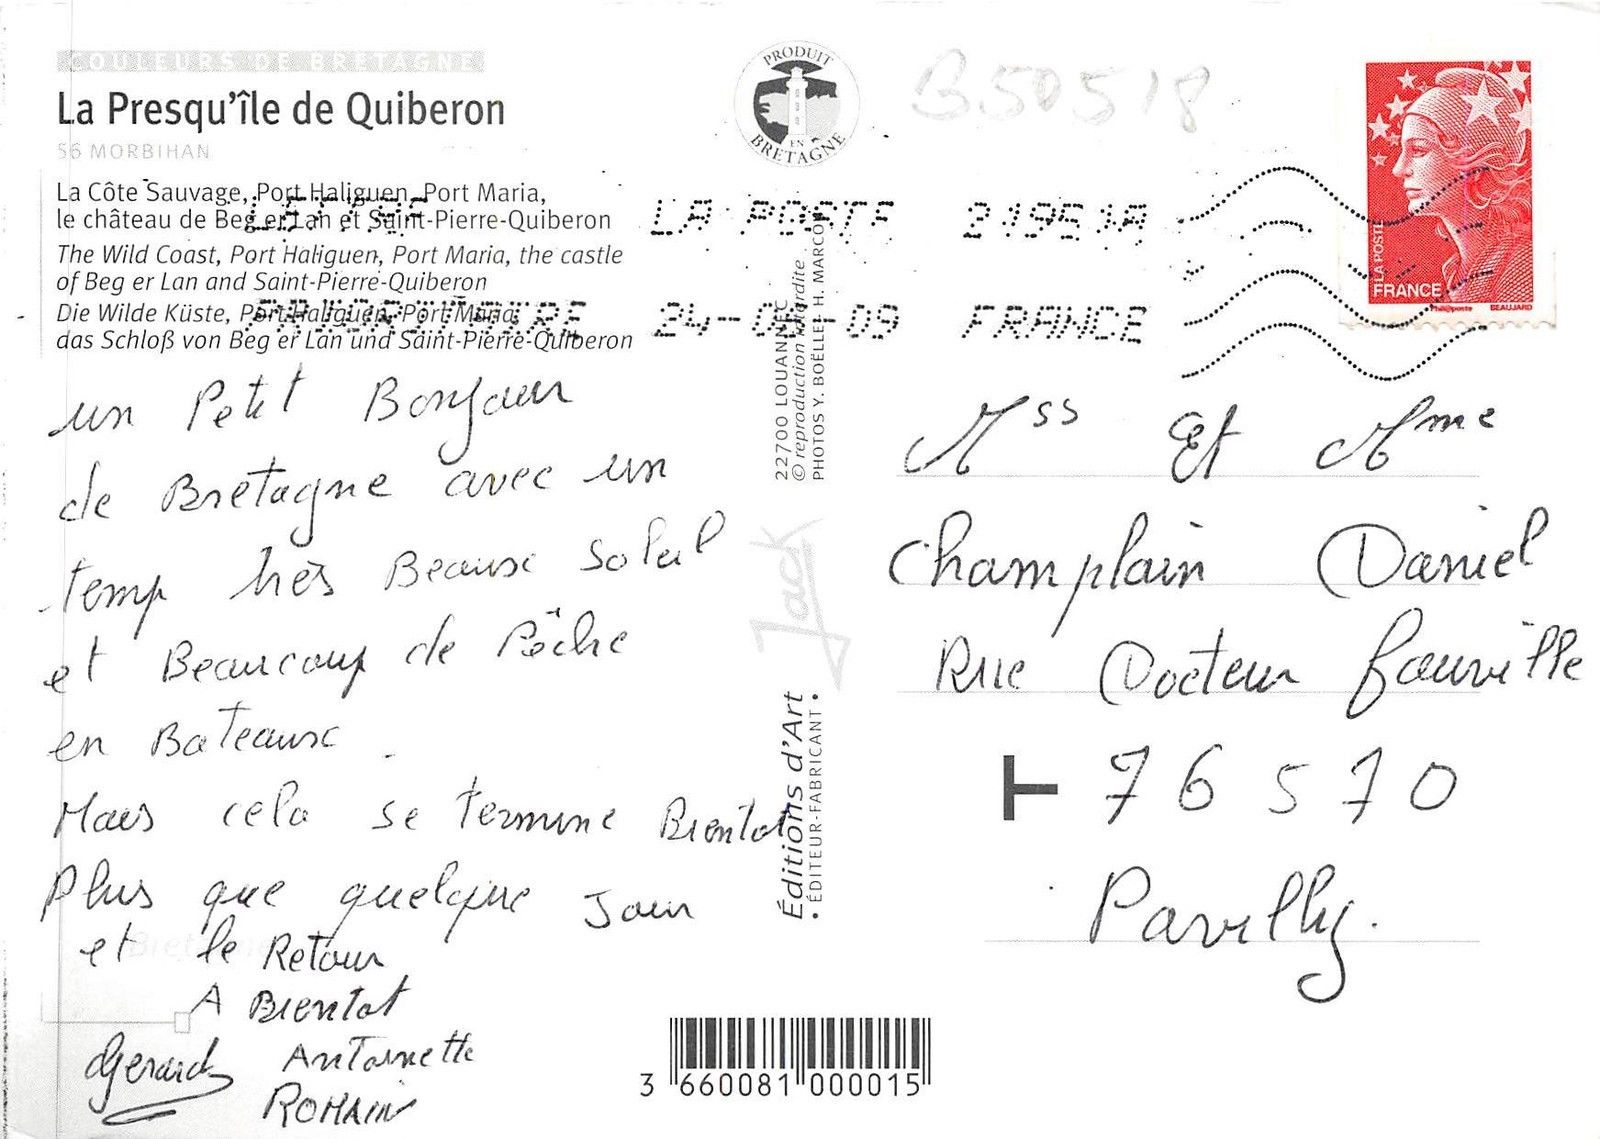 COULEURS DE BRETAGNE
La Presqu'île de Quiberon
56 MORBIHAN
La Côte Sauvage, Port Haliguen, Port Maria,
le château de Beg er Lan et Saint-Pierre-Quiberon
The Wild Coast, Port Haliguen, Port Maria, the castle
of Beg er Lan and Saint-Pierre-Quiberon
Die Wilde Küste, Port Haliguen, Port Maria,
das Schloß von Beg er Lan und Saint-Pierre-Quiberon
un Petit Bonjour
de Bretagne avec un
temp très Beaux soleil
et Beaucoup de Pêche
en Bateaux.
Mais cela se termine Bientot
Plus que quelque Jour
et le Retour
A Bientot
Gerard Antoinette
ROMAIN
PRODUIT
EN
BRETAGNE
B50518
LA POSTE 21951A
24-0 -09 FRANCE
22700 LOUANNEC
© reproduction interdite
PHOTOS Y. BOËLLE - H. MARCOU
Jack
Éditions d'Art
• ÉDITEUR-FABRICANT •
3 660081 000015
LA POSTE
FRANCE
Phil@poste BEAUJARD
Mss Et Mme
Champlain Daniel
Rue Docteur Fauville
T 76570
Pavilly.